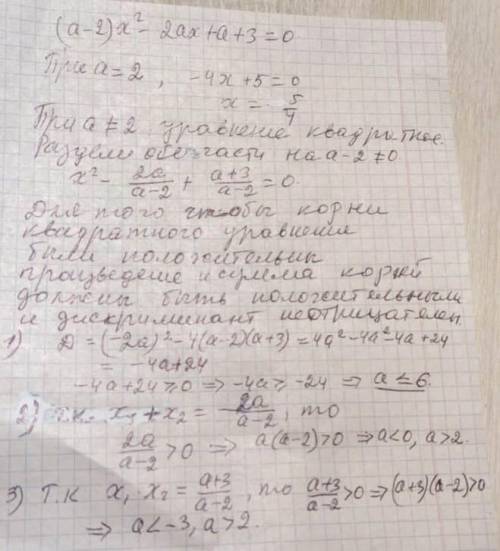 (a-2)x² - 2ax + a + 3 = 0
При a = 2, -4x + 5 = 0
x = 5/4
При a ≠ 2 уравнение квадратное.
Разделим обе части на a-2 ≠ 0
x² - 2a/(a-2) + (a+3)/(a-2) = 0.
Для того чтобы корни
квадратного уравнения
были положительны
произведение и сумма корней
должны быть положительными
и дискриминант неотрицателен
1) D = (-2a)² - 4(a-2)(a+3) = 4a² - 4a² - 4a + 24
= -4a + 24
-4a + 24 ≥ 0 ⇒ -4a ≥ -24 ⇒ a ≤ 6.
2) т.к. x₁ + x₂ = 2a/(a-2), то
2a/(a-2) > 0 ⇒ a(a-2) > 0 ⇒ a < 0, a > 2.
3) Т.К x₁ x₂ = (a+3)/(a-2), то (a+3)/(a-2) > 0 ⇒ (a+3)(a-2) > 0
⇒ a < -3, a > 2.